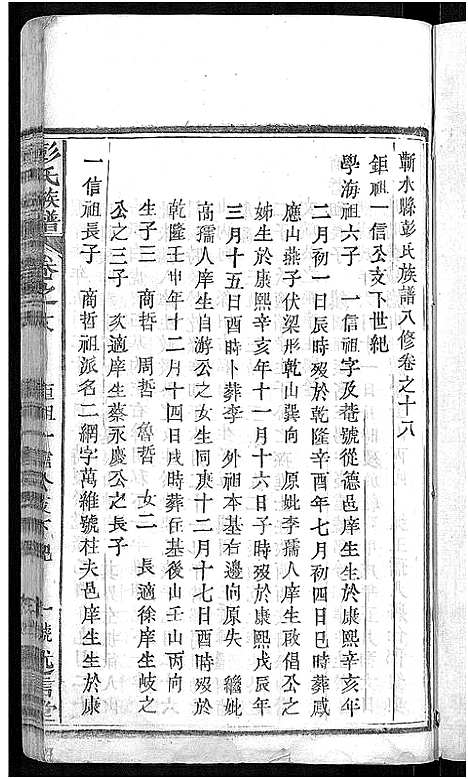 蘄水縣彭氏族譜八修卷之十六
鉅祖一信公支下世紀
學海祖六子 一信祖字及菴號從德邑庠生生於康熙辛亥年
二月初一日辰時歿於乾隆辛酉年七月初四日戌時葬咸
應山燕子伏梁形乾山巽向 原妣李孺人庠生啟倡公之
姊生於康熙辛亥年十一月十六日子時歿於康熙戊辰年
三月十五日酉時卜葬李 外祖本基右邊向原失 繼妣
高孺人庠生自游公之女生同庚十二月十七日酉時歿於
乾隆壬申年十二月十四日戌時葬任基後山壬山丙向
生子三 商哲 周哲 魯哲 女二 長適徐庠生岐之
公之三子 次適庠生蔡永慶公之長子
一信祖長子 商哲祖派名二網字萬維號杜夫邑庠生生於康
彭氏族譜 卷之十六 鉅祖一信公支下世紀 一號